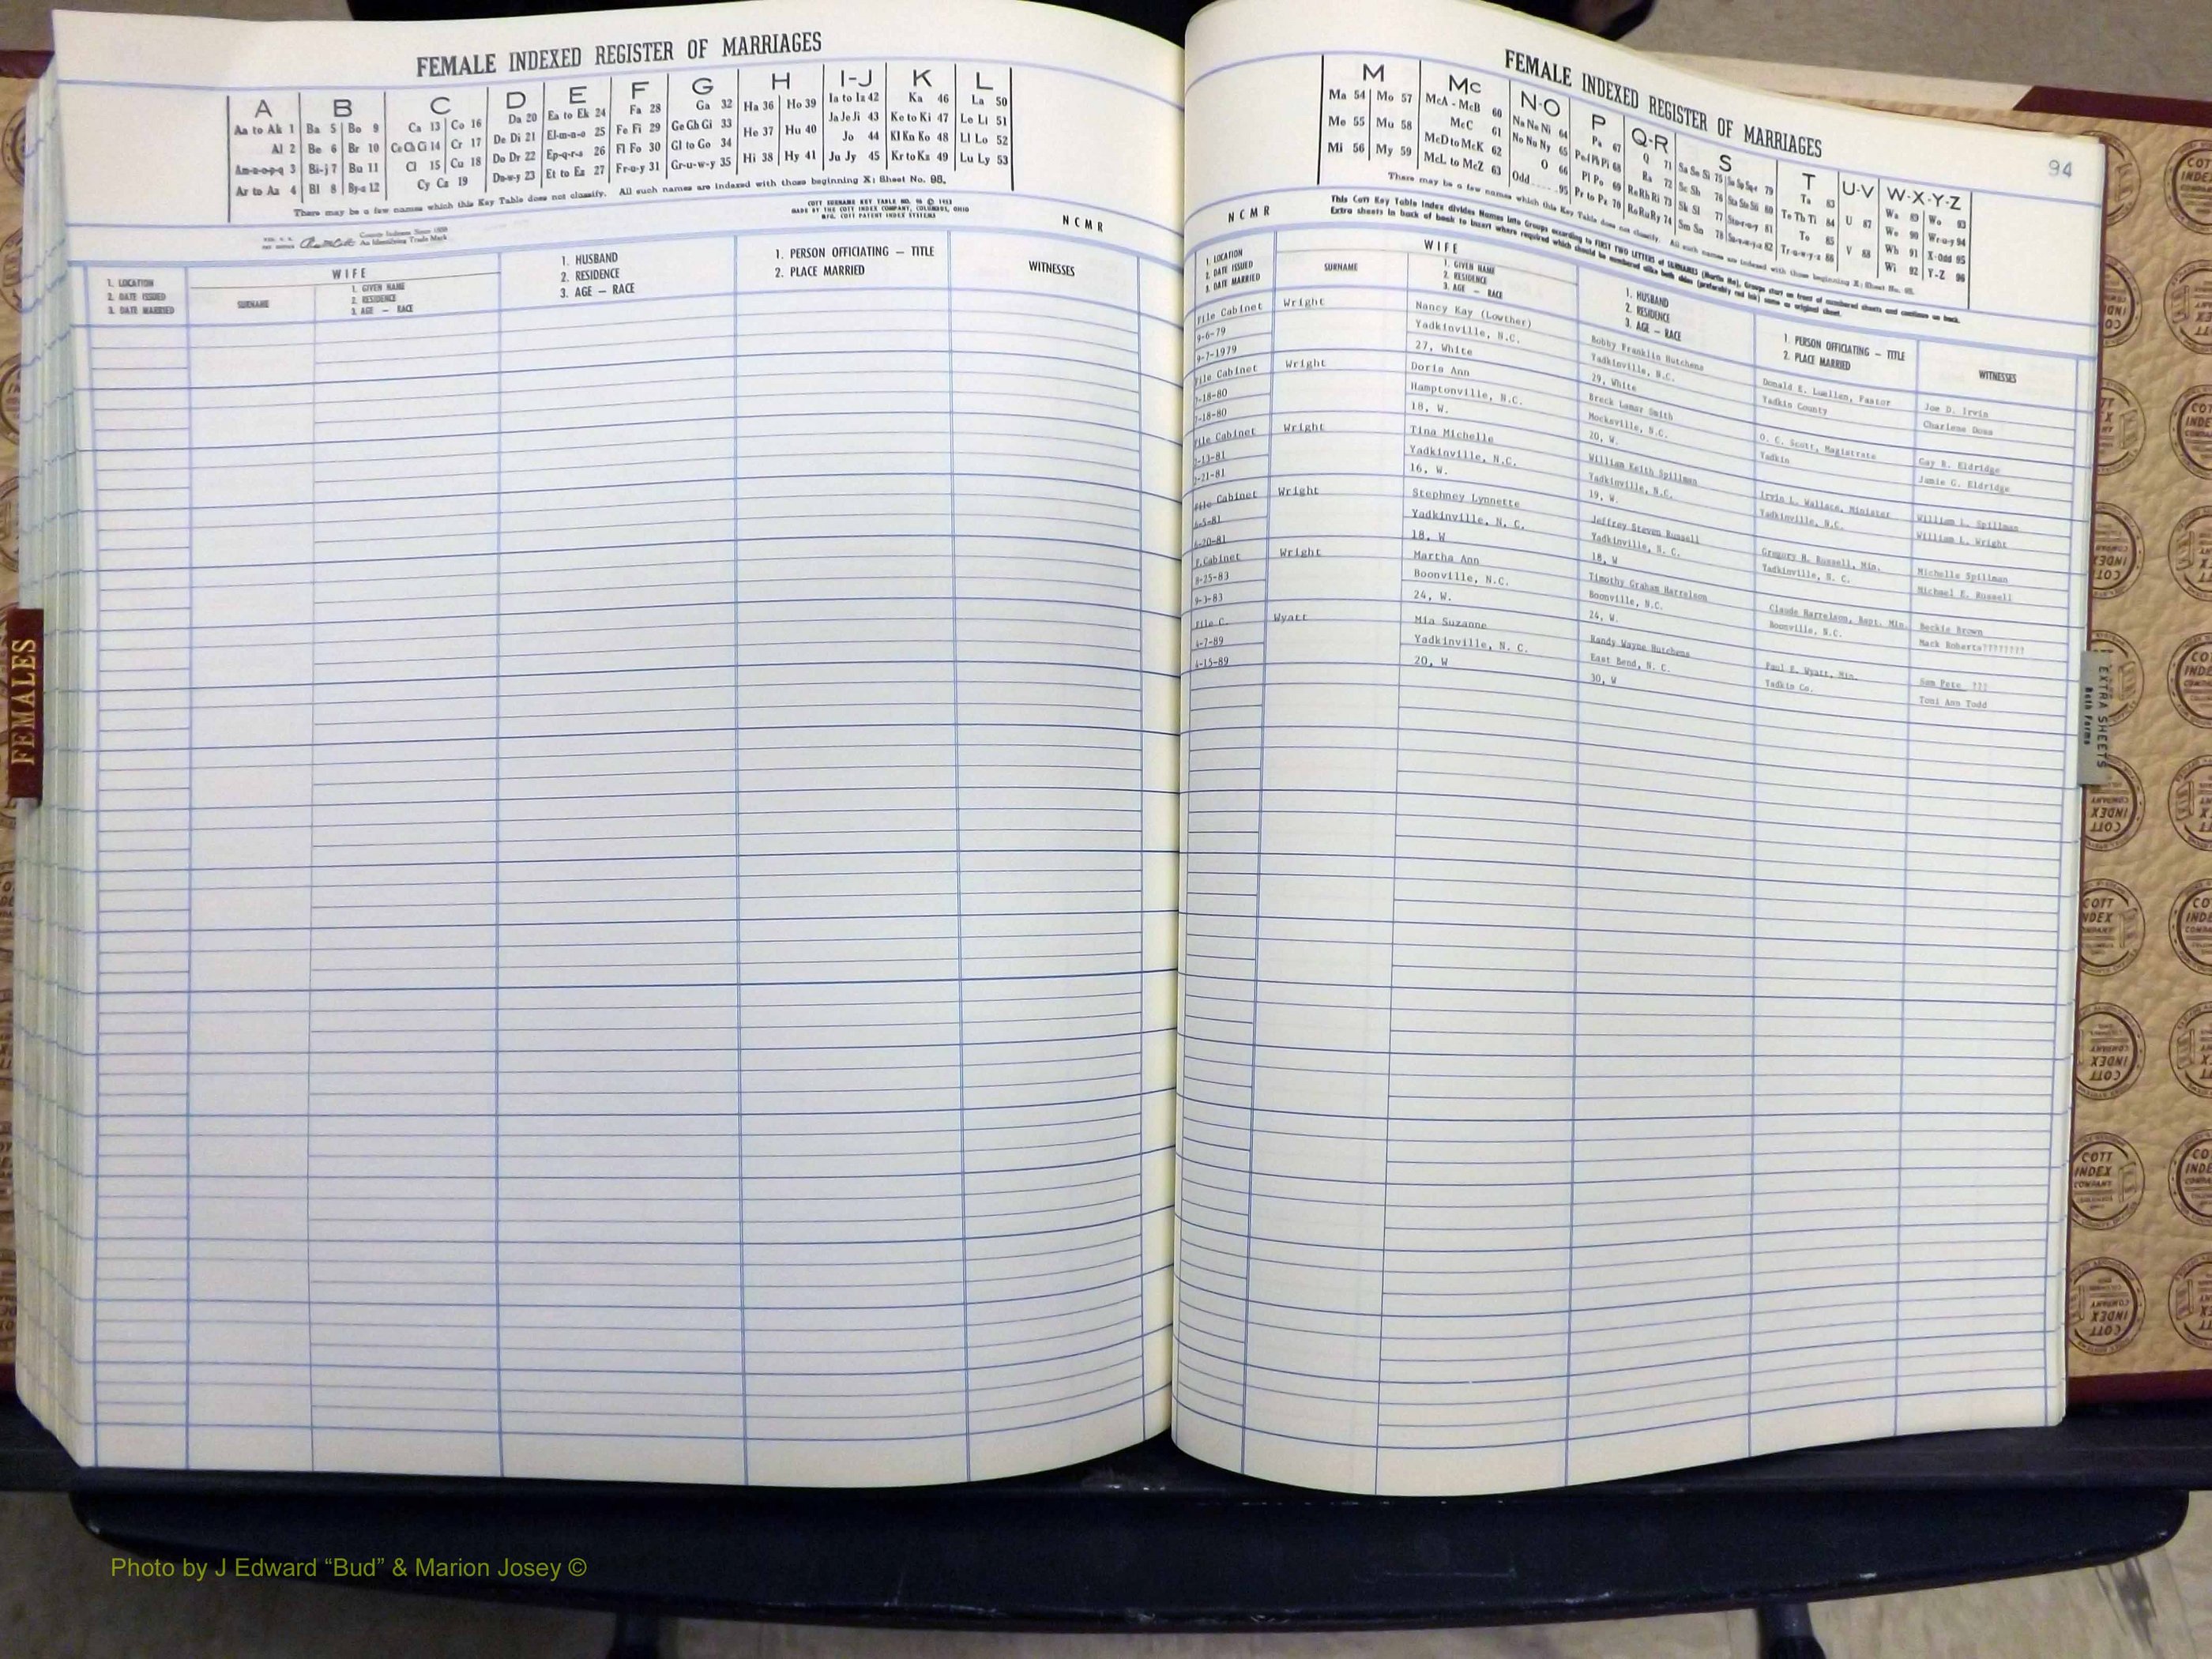 FEMALE INDEXED REGISTER OF MARRIAGES
A B C D E F G H I-J K L
Aa to Ak 1 Ba 5 Bo 9 Ca 13 Co 16 Da 20 Ea to Ek 24 Fa 28 Ga 32 Ha 36 Ho 39 Ia to Iz 42 Ka 46 La 50
Al 2 Be 6 Br 10 Ce Ch Ci 14 Cr 17 De Di 21 El-m-n-o 25 Fe Fi 29 Ge Gh Gi 33 He 37 Hu 40 Ja Je Ji 43 Ke to Ki 47 Le Li 51
Am-n-o-p-q 3 Bi-j 7 Bu 11 Cl 15 Cu 18 Do Dr 22 Ep-q-r-s 26 Fl Fo 30 Gl to Go 34 Hi 38 Hy 41 Jo 44 Kl Kn Ko 48 Ll Lo 52
Ar to Az 4 Bl 8 By-z 12 Cy Cz 19 Du-w-y 23 Et to Ez 27 Fr-u-y 31 Gr-u-w-y 35 Ju Jy 45 Kr to Kz 49 Lu Ly 53
There may be a few names which this Key Table does not classify. All such names are indexed with those beginning X; Sheet No. 96.
COTT SURNAME KEY TABLE NO. 96 © 1953
MADE BY THE COTT INDEX COMPANY, COLUMBUS, OHIO
MFG. COTT PATENT INDEX SYSTEMS
County Indexes Since 1888
An Identifying Trade Mark
NCMR
1. LOCATION
2. DATE ISSUED
3. DATE MARRIED
WIFE
SURNAME
1. GIVEN NAME
2. RESIDENCE
3. AGE – RACE
1. HUSBAND
2. RESIDENCE
3. AGE – RACE
1. PERSON OFFICIATING – TITLE
2. PLACE MARRIED
WITNESSES
FEMALES
FEMALE INDEXED REGISTER OF MARRIAGES
94
M Mc N-O P Q-R S T U-V W-X-Y-Z
Ma 54 Mo 57 McA - McB 60 Na Ne Ni 64 Pa 67 Q 71
Me 55 Mu 58 McC 61 No Nu Ny 65 Pe Pf Ph Pi 68 Ra 72 Sc Sh 76
Mi 56 My 59 McD to McK 62 O 66 Pl Po 69 Re Rh Ri 73 Sk Sl 77
McL to McZ 63 Odd 95 Pr to Pz 70 Ro Ru Ry 74 Sm Sn 78
Ta 83 U 87 Wa 89 Wo 93
Te Th Ti 84 We 90 Wr-u-y 94
To 85 V 88 Wh 91 X-Odd 95
Tr-u-w-y-z 86 Wi 92 Y-Z 96
There may be a few names which this Key Table does not classify. All such names are indexed with those beginning X; Sheet No. 95.
This Cott Key Table Index divides Names into Groups according to FIRST TWO LETTERS of SURNAMES (Martin Ma). Groups start on front of numbered sheets and continue on back.
Extra sheets in back of book to insert where required which should be numbered alike both sides (preferably red ink) same as original sheet.
NCMR
1. LOCATION
2. DATE ISSUED
3. DATE MARRIED
WIFE
SURNAME
1. GIVEN NAME
2. RESIDENCE
3. AGE – RACE
1. HUSBAND
2. RESIDENCE
3. AGE – RACE
1. PERSON OFFICIATING – TITLE
2. PLACE MARRIED
WITNESSES
File Cabinet Wright Nancy Kay (Lowther) Bobby Franklin Hutchens Donald E. Luellen, Pastor Joe D. Irvin
9-6-79 Yadkinville, N.C. Yadkinville, N.C. Yadkin County Charlene Doss
9-7-1979 27, White 29, White
File Cabinet Wright Doris Ann Breck Lamar Smith O. C. Scott, Magistrate Gay R. Eldridge
-18-80 Hamptonville, N.C. Mocksville, N.C. Yadkin Jamie G. Eldridge
-18-80 18, W. 20, W.
File Cabinet Wright Tina Michelle William Keith Spillman Irvin L. Wallace, Minister William L. Spillman
-13-81 Yadkinville, N.C. Yadkinville, N.C. Yadkinville, N.C. William L. Wright
-21-81 16, W. 19, W.
File Cabinet Wright Stephney Lynnette Jeffrey Steven Russell Gregory H. Russell, Min. Michelle Spillman
6-5-81 Yadkinville, N. C. Yadkinville, N. C. Yadkinville, N. C. Michael E. Russell
6-20-81 18, W 18, W
F.Cabinet Wright Martha Ann Timothy Graham Harrelson Claude Harrelson, Bapt. Min. Beckie Brown
8-25-83 Boonville, N.C. Boonville, N.C. Boonville, N.C. Mack Roberts????????
9-3-83 24, W. 24, W.
File C. Wyatt Mia Suzanne Randy Wayne Hutchens Paul E. Wyatt, Min. Sam Pete ???
4-7-89 Yadkinville, N. C. East Bend, N. C. Yadkin Co. Toni Ann Todd
4-15-89 20, W 30, W
EXTRA SHEETS
Both Forms
COTT INDEX COMPANY
Photo by J Edward “Bud” & Marion Josey ©